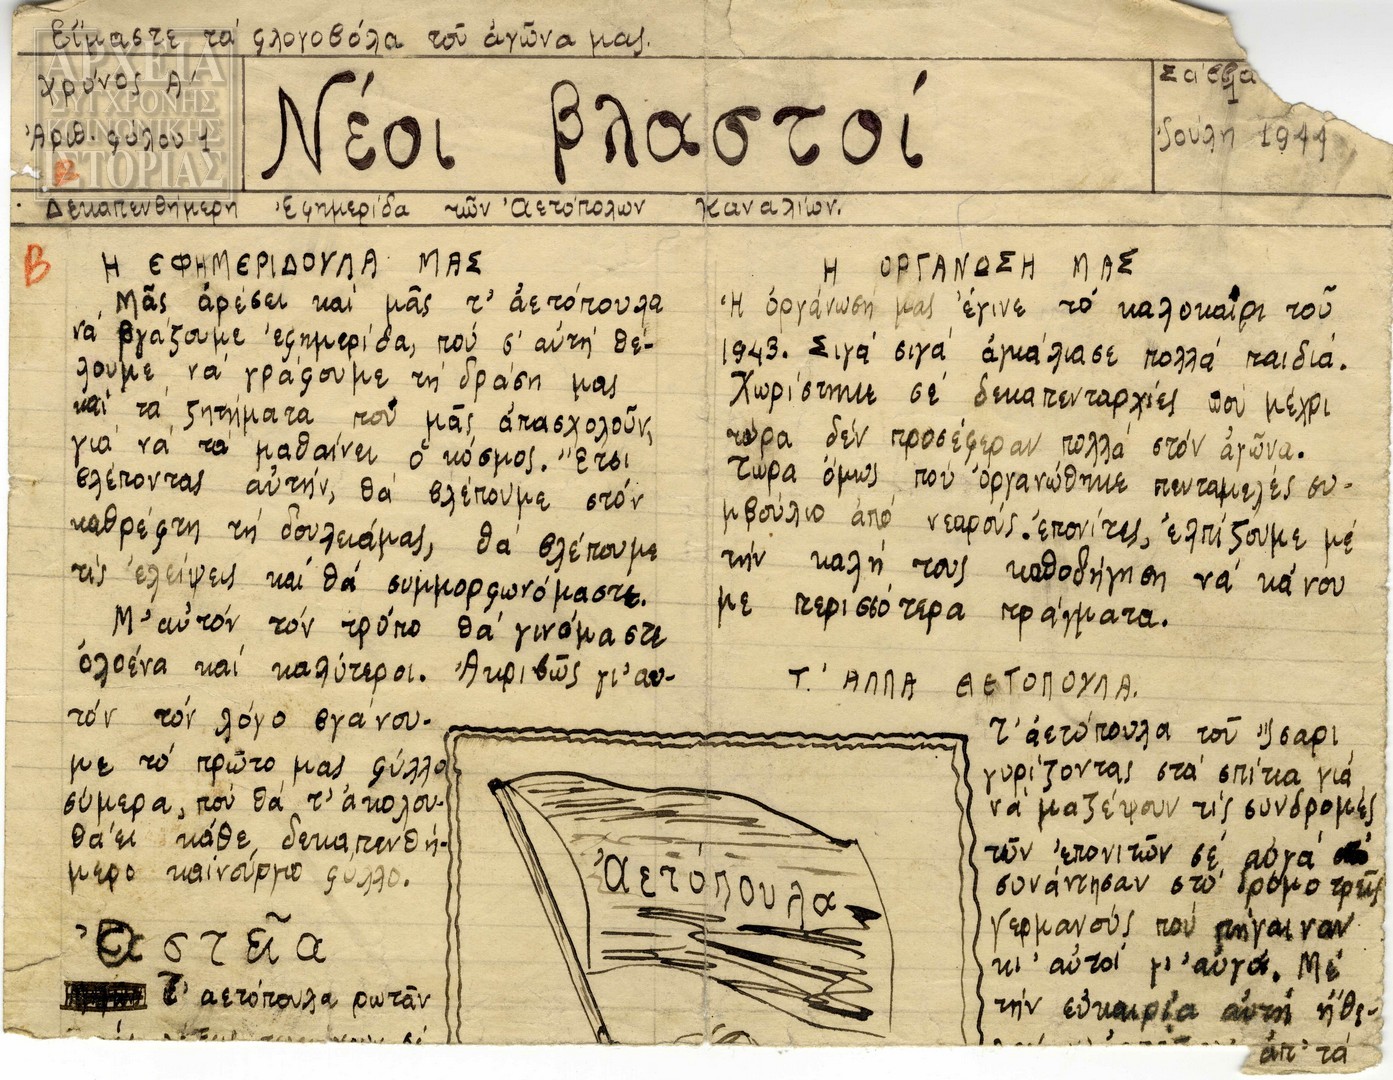 Εἴμαστε τά φλογοβόλα τοῦ ἀγῶνα μας.
ΑΡΧΕΙΑ
ΣΥΓΧΡΟΝΗΣ
ΚΟΙΝΩΝΙΚΗΣ
ΙΣΤΟΡΙΑΣ
Χρόνος Α΄
Ἀριθ. φύλου 1
Νέοι βλαστοί
Σάββα
Ἰούλη 1944
Δεκαπενθήμερη ἐφημερίδα τῶν Ἀετόπολων Καναλίων.
Β
Η ΕΦΗΜΕΡΙΔΟΥΛΑ ΜΑΣ
Μᾶς ἀρέσει καί μᾶς τ' ἀετόπουλα
νά βγάζουμε ἐφημερίδα, πού σ' αὐτή θέ-
λουμε νά γράφουμε τή δράση μας
καί τά ζητήματα πού μᾶς ἀπασχολοῦν,
γιά νά τά μαθαίνει ὁ κόσμος. Ἔτσι
βλέποντας αὐτήν, θά βλέπουμε στόν
καθρέφτη τή δουλειάμας, θά βλέπουμε
τίς ἐλείψεις καί θά συμμορφωνόμαστε.
Μ' αὐτόν τόν τρόπο θά γινόμαστε
ὁλοένα καί καλύτεροι. Ἀκριβῶς γι' αυ-
τόν τόν λόγο βγάνου-
με τό πρῶτο μας φύλλο
σύμερα, πού θά τ' ἀκολου-
θάει κάθε δεκαπενθή-
μερο καινούργιο φύλλο.
Ἀστεῖα
Τ' αετόπουλα ρωτᾶν
Η ΟΡΓΑΝΩΣΗ ΜΑΣ
Ἡ ὀργάνωσή μας ἔγινε τό καλοκαῖρι τοῦ
1943. Σιγά σιγά ἀγκάλιασε πολλά παιδιά.
Χωρίστηκε σέ δεκαπενταρχίες πού μέχρι
τώρα δέν προσέφεραν πολλά στόν ἀγῶνα.
Τώρα ὅμως πού ὀργανώθηκε πενταμελές συ-
μβούλιο ἀπό νεαρούς ἐπονίτες, ἐλπίζουμε μέ
τήν καλή τους καθοδήγηση νά κάνου
με περισσότερα πράγματα.
Τ' ΑΛΛΑ ΑΕΤΟΠΟΥΛΑ.
Τ' ἀετόπουλα τοῦ Ἰσαρι
γυρίζοντας στά σπίτια γιά
νά μαζέψουν τίς συνδρομές
τῶν ἐπονιτῶν σέ αὐγά
συνάντησαν στό δρόμο τρεῖς
γερμανούς πού πήγαιναν
κι' αὐτοί γι' αὐγά. Μέ
τήν εὐκαιρία αὐτή ἤθε-
ἀπ' τά
Ἀετόπουλα